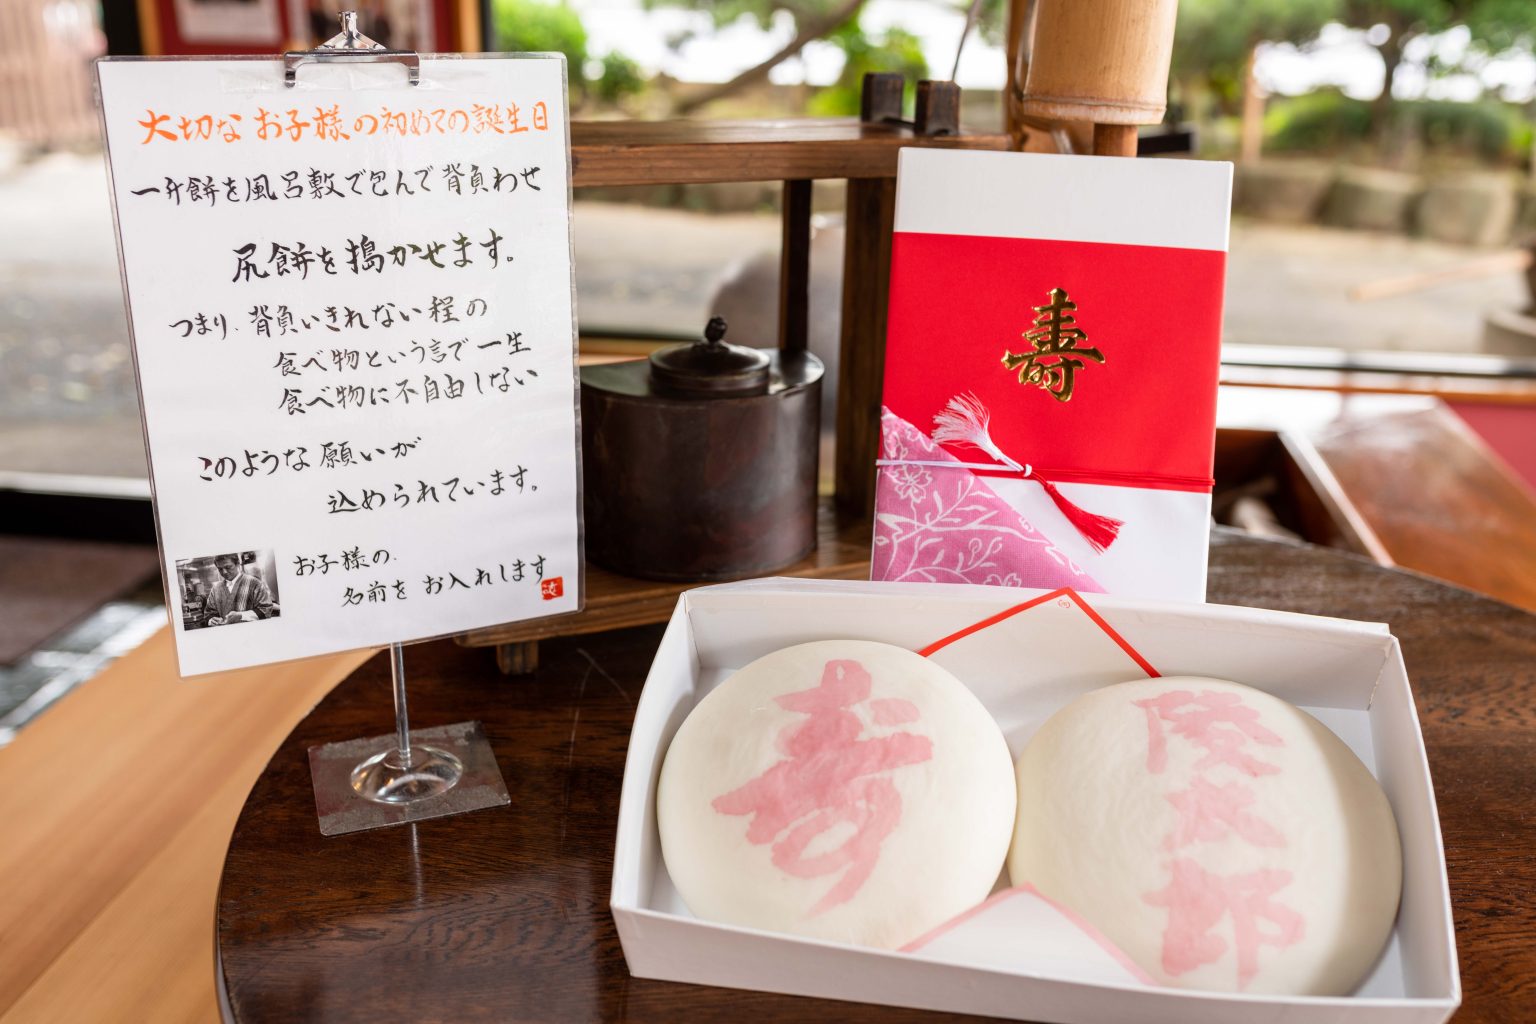 大切なお子様の初めての誕生日
一升餅を風呂敷で包んで背負わせ
尻餅を搗かせます。
つまり、背負いきれない程の
食べ物という訳で一生
食べ物に不自由しない
このような願いが
込められています。
お子様の、
名前をお入れします
寿
寿
陵太郎